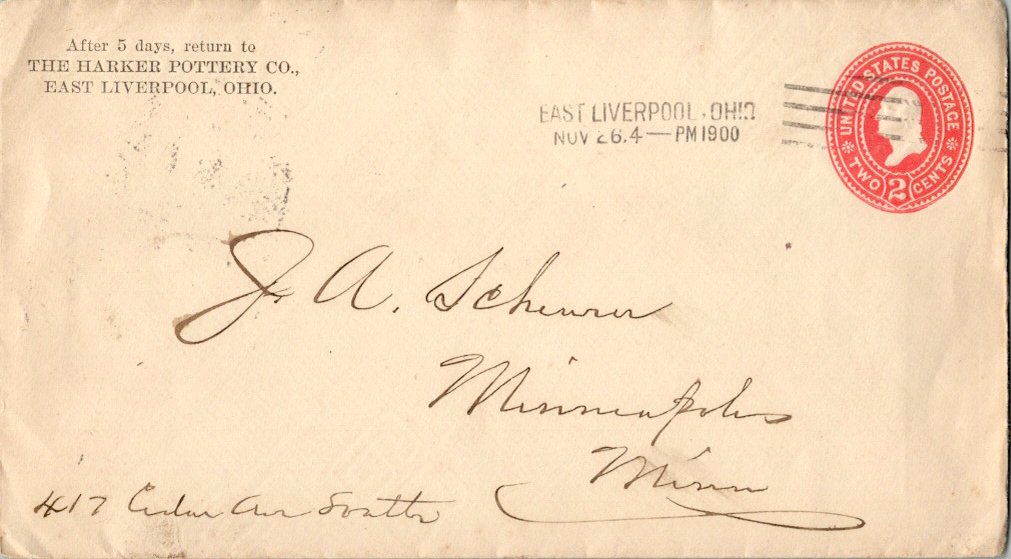 After 5 days, return to
THE HARKER POTTERY CO.,
EAST LIVERPOOL, OHIO.
EAST LIVERPOOL, OHIO
NOV 26.4—PM 1900
UNITED STATES POSTAGE
TWO 2 CENTS
J. A. Scheurer
Minneapolis
Minn
417 Cedar Ave South